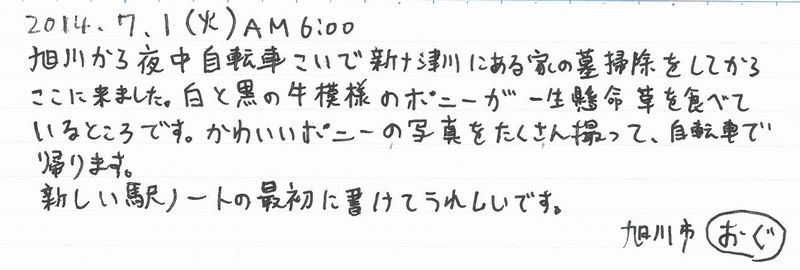 2014.7.1(火)AM6:00
旭川から夜中自転車こいで新十津川にある家の墓掃除をしてから
ここに来ました。白と黒の牛模様のポニーが一生懸命草を食べて
いるところです。かわいいポニーの写真をたくさん撮って、自転車で
帰ります。
新しい駅ノートの最初に書けてうれしいです。
旭川市 おーぐ